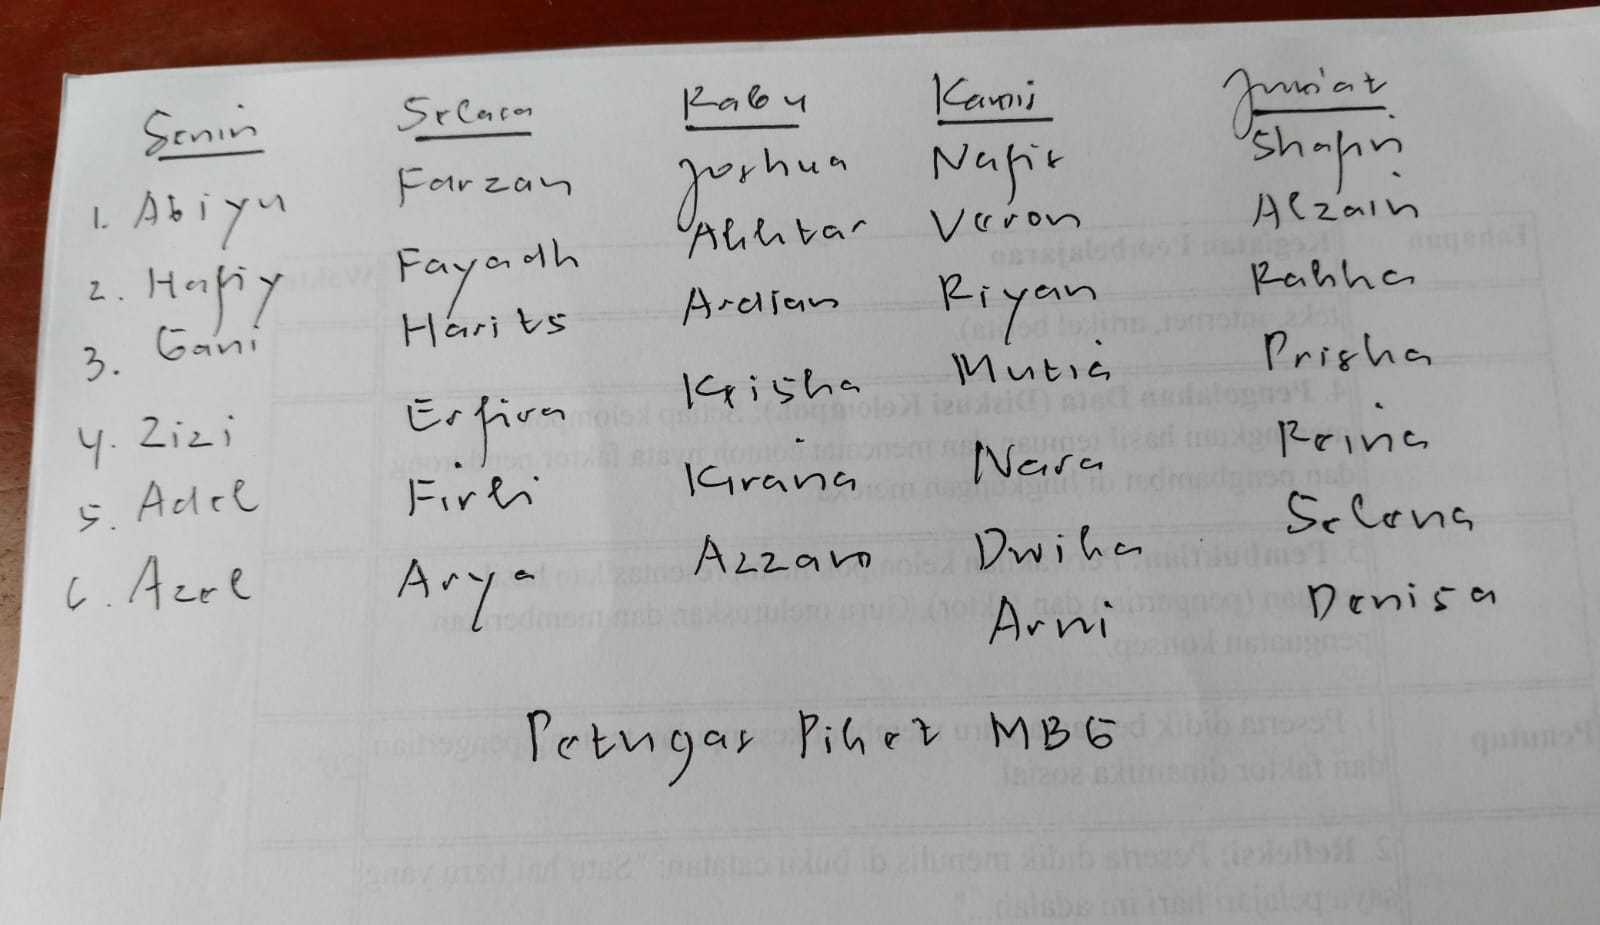 Senin Selasa Rabu Kamis Jum'at
1. Abiyu Farzan Joshua Nafis Shafin
2. Hafiy Fayadh Akhtar Veron Alzain
3. Gani Harits Ardian Riyan Rakha
4. Zizi Erfira Krisha Mutia Prisha
5. Adel Firli Kirana Nara Reina
6. Azel Arya Azzam Dwika Selena
Arni Denisa
Petugas Piket MBG